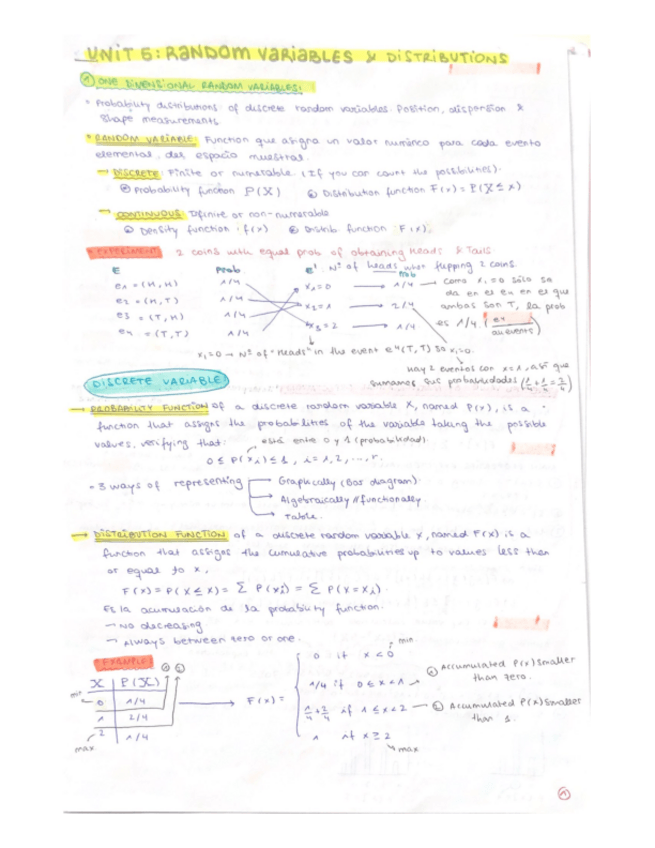 UNIT 6: RANDOM VARIABLES & DISTRIBUTIONS
① ONE DIMENSIONAL RANDOM VARIABLES:
• Probability distributions of discrete random variables. Position, dispersion &
shape measurements
• RANDOM VARIABLE: Function que asigna un valor numérico para cada evento
elemental, del espacio muestral.
→ DISCRETE: Finite or numerable. (If you can count the possibilities).
Probability function P(X) Distribution function F(x) = P(X ≤ x)
→ CONTINUOUS: or non-numerable
Density function: f(x) Distrib. function: F(x).
EXPERIMENT: 2 coins with equal prob of obtaining Heads & Tails.
E Prob e' Nº of heads when flipping 2 coins.
Prob
e1 = (H, H) 1/4 x1 = 0 → 1/4 → como x1 = 0 sólo se
da en el e4 en el que
e2 = (H, T) 1/4 x2 = 1 2/4
ambas son T, la prob
e3 = (T, H) 1/4
es 1/4. (e4
e4 = (T, T) 1/4 x3 = 2 → 1/4
x1 = 0 → Nº of "heads" in the event e4 (T, T) so x1 = 0.
Hay 2 eventos con x = 1, así que
sumamos sus probabilidades (1/4 + 1/4 = 2/4)
DISCRETE VARIABLE:
→ PROBABILITY FUNCTION of a discrete random variable X, named P(x), is a
function that assigns the probabilities of the variable taking the possible
values, verifying that: está entre 0 y 1 (probabilidad).
0 ≤ P(xi) ≤ 1, i = 1, 2, ..., r.
• 3 ways of representing → Graphically (Bar diagram).
→ Algebraically // functionally.
→ Table.
→ DISTRIBUTION FUNCTION of a discrete random variable X, named F(x) is a
function that assigns the cumulative probabilities up to values less than
or equal to x,
F(x) = P(X ≤ x) = Σ P(xi) = Σ P(X = xi).
Es la acumulación de la probability function.
→ No decreasing
→ Always between zero or one.
EXAMPLE: ① ②
min
X P(X)
min 0 1/4
1 2/4
2 1/4
max
→ F(x) =
0 if x < 0
1/4 if 0 ≤ x < 1 → ① Accumulated P(x) smaller
than zero.
1/4 + 2/4 if 1 ≤ x < 2 → ② Accumulated P(x) smaller
than 1.
1 if x ≥ 2
max
①